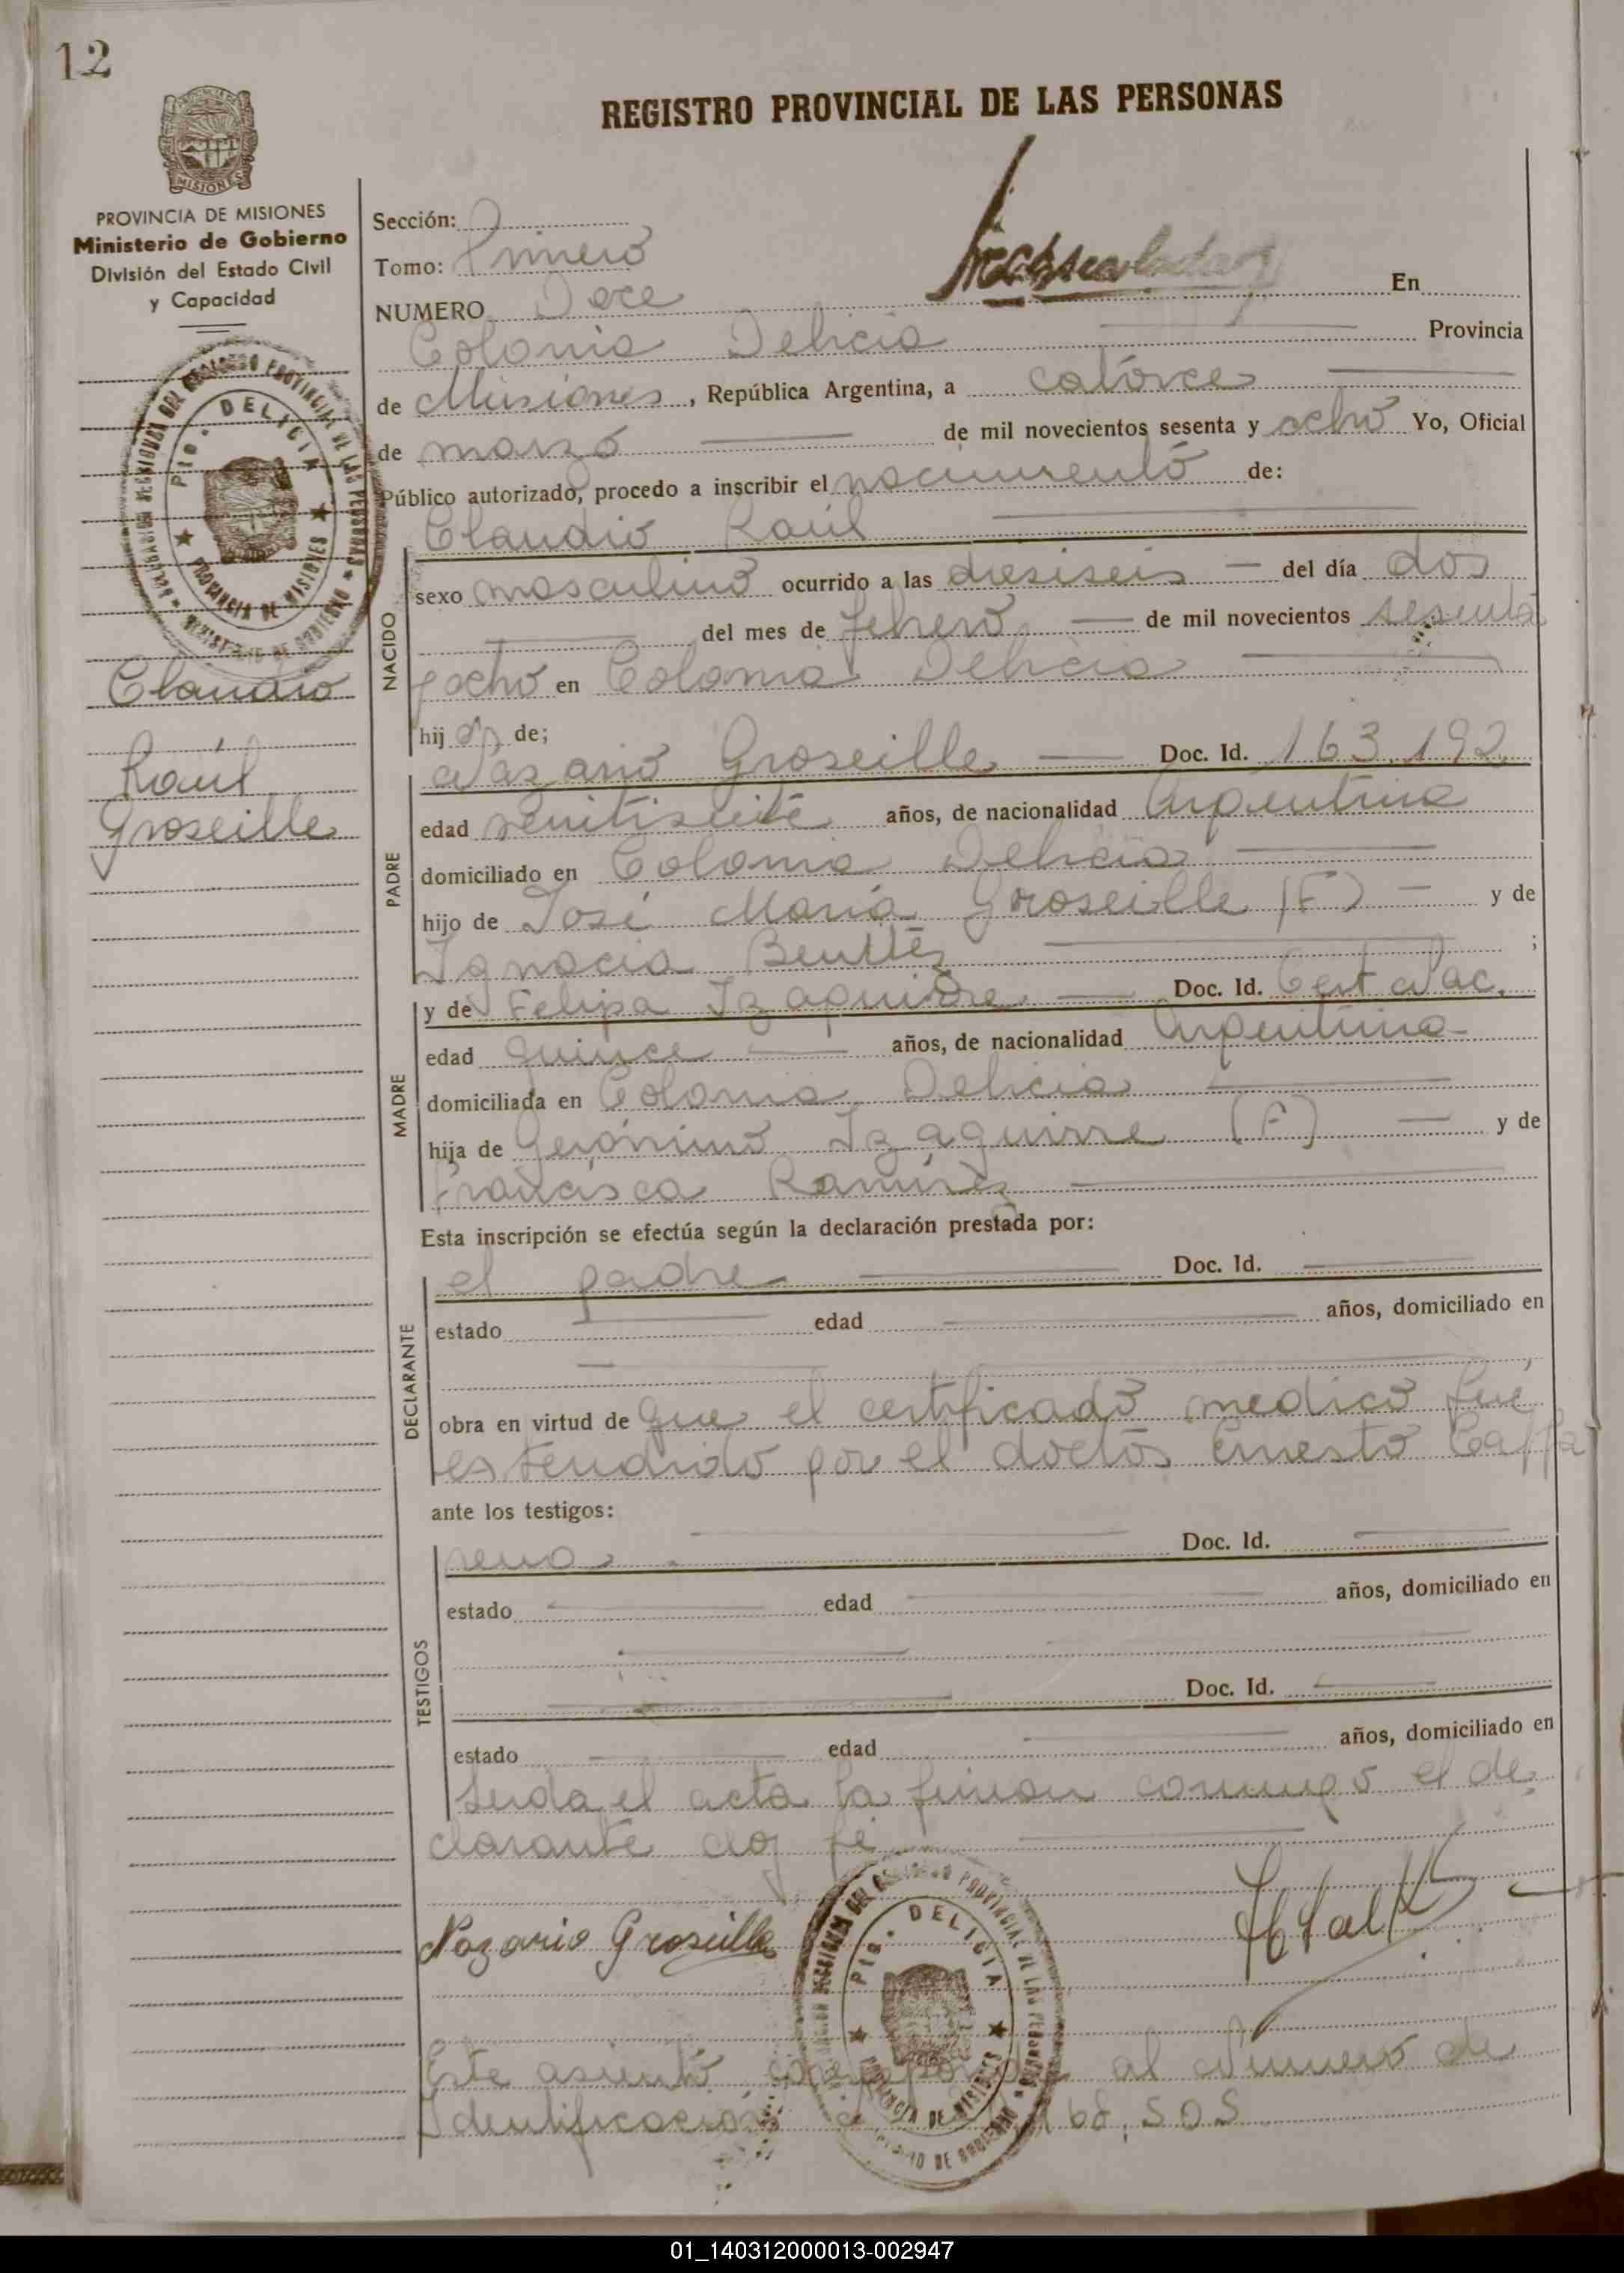 12
REGISTRO PROVINCIAL DE LAS PERSONAS
MISIONES
PROVINCIA DE MISIONES
Ministerio de Gobierno
División del Estado Civil
y Capacidad
Sección:
Tomo: Primero
NUMERO Doce En
Colonia Delicia Provincia
de Misiones, República Argentina, a catorce
de marzo de mil novecientos sesenta y ocho Yo, Oficial
Público autorizado, procedo a inscribir el nacimiento de:
Claudio Raúl
NACIDO
sexo masculino ocurrido a las dieciseis del día dos
del mes de febrero de mil novecientos sesenta
y ocho en Colonia Delicia
hijo de;
Claudio
Raúl
Groseille
PADRE
Nazario Groseille Doc. Id. 163.192
edad años, de nacionalidad Argentina
domiciliado en Colonia Delicia
hijo de José María Groseille (F) y de
Ignacia Benitez ;
MADRE
y de Felipa Izaguirre Doc. Id. Cert Nac.
edad quince años, de nacionalidad Argentina
domiciliada en Colonia Delicia
hija de Gerónimo Izaguirre (F) y de
Francisca Ramírez
Esta inscripción se efectúa según la declaración prestada por:
DECLARANTE
el padre Doc. Id.
estado edad años, domiciliado en
obra en virtud de que el certificado medico fué
extendido por el doctor Ernesto Caffa
ante los testigos:
TESTIGOS
rena Doc. Id.
estado edad años, domiciliado en
Doc. Id.
estado edad años, domiciliado en
Leida el acta la firman conmigo el de
clarante doy fé
Nazario Groseille
PTO. DELICIA
PROVINCIA DE MISIONES
Este asiento corresponde al Número de
Identificación 168.505
01_140312000013-002947